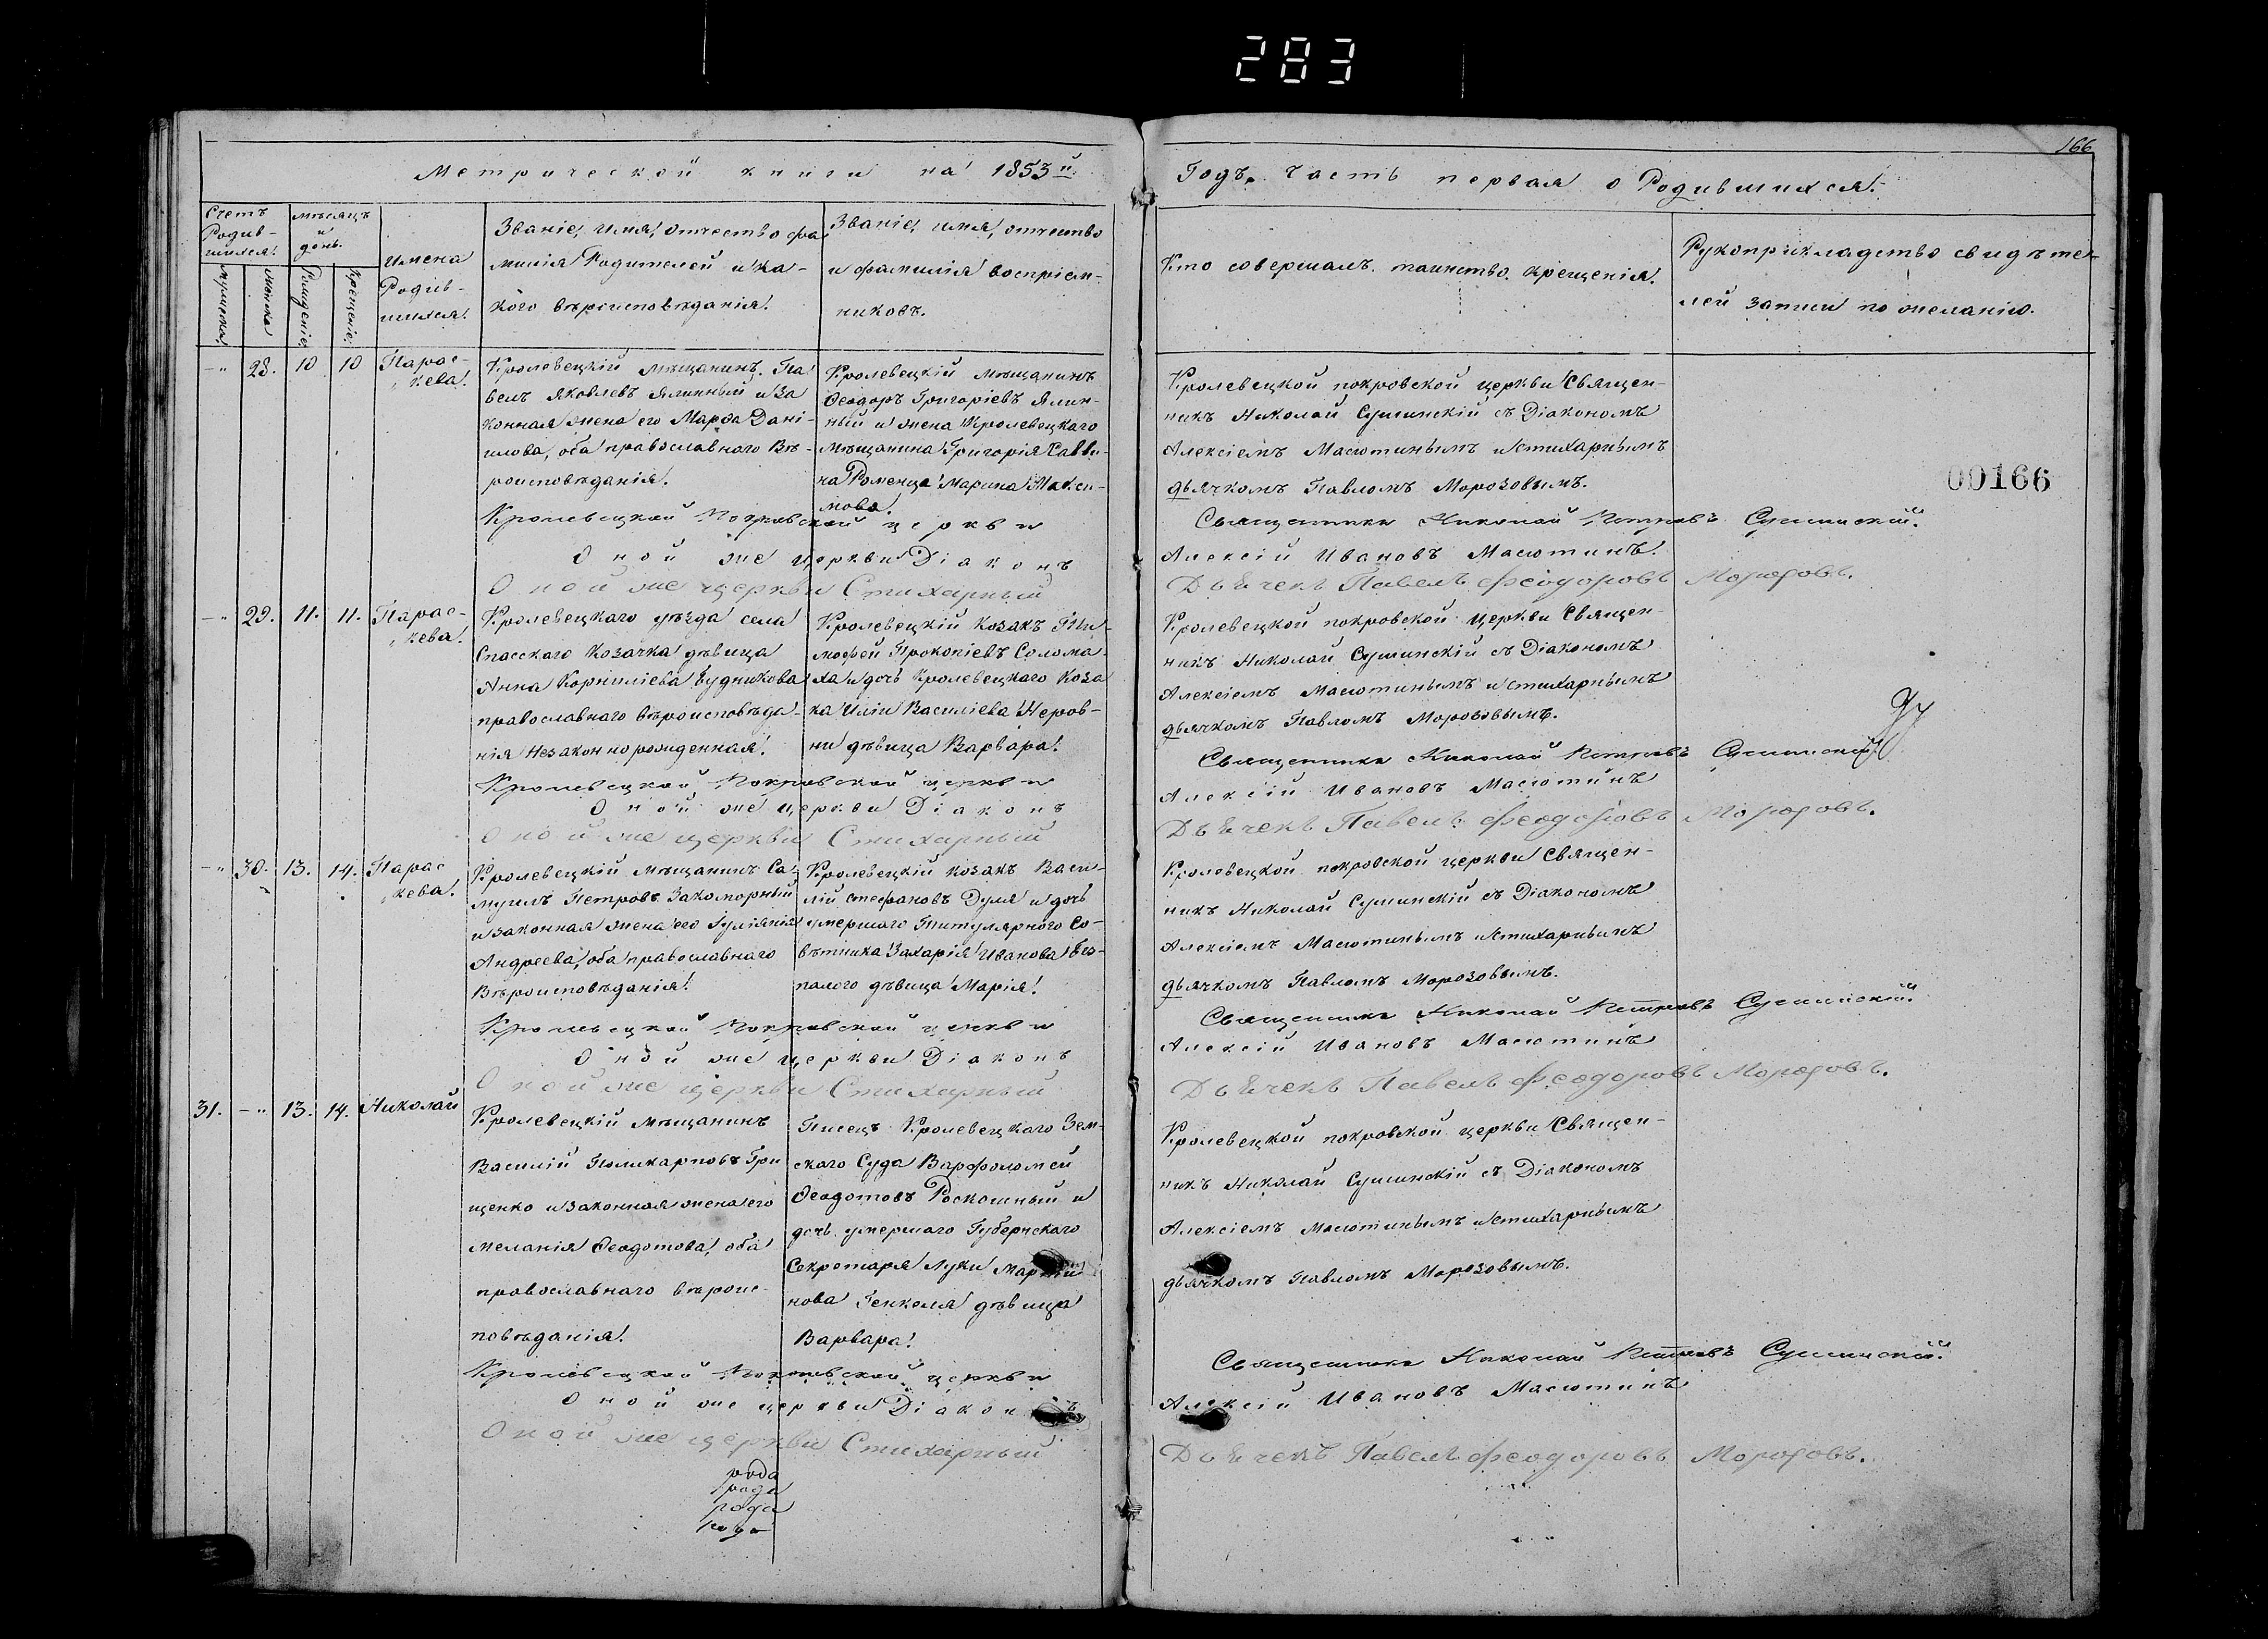 283
166
Метрической книги на 1853й
Годъ. Часть первая о Родившихся.
Счетъ
Родив-
шихся.
мужеска
женска
Мѣсяцъ
и
день.
Рожденіе
Крещеніе
Имена
Родив-
шихся.
Званіе, имя, отчество фа
милія Родителей и ка-
кого вѣроисповѣданія.
Званіе, имя, отчество
и фамилія воспріем-
никовъ.
Кто совершалъ таинство крещенія.
Рукоприкладство свидѣте-
лей записи по желанію.
28. 10 10 Парас-
кева.
Кролевецкій мѣщанинъ Па
велъ Яковлевъ Ялинный и за
конная жена его Марфа Дані-
илова, оба православнаго Вѣ-
роисповѣданія.
Кролевецкій мѣщанинъ
Ѳеодоръ Григоріевъ Ялин-
ный и жена Кролевецкаго
мѣщанина Григорія Савви-
на Роменца Марина Макси-
мова.
Кролевецкой покровской церкви Священ-
никъ Николай Сушинскій съ Діакономъ
Алексіемъ Масютинымъ и стихарнымъ
дьячкомъ Павломъ Морозовымъ.
00166
Кролевецкой Покровской церкви Священникъ Николай Петровъ Сушинскій.
Оной же церкви Діаконъ Алексій Ивановъ Масютинъ.
Оной же церкви Стихарный Дьячекъ Павелъ Феодоровъ Морозовъ.
29. 11. 11. Парас-
кева.
Кролевецкаго уѣзда села
Спасскаго Козачка дѣвица
Анна Корниліева Будникова
православнаго вѣроисповѣда-
нія незаконнорожденная.
Кролевецкій Козакъ Ти-
мофей Прокопіевъ Солома-
ха и дочь Кролевецкаго Коза
ка Иліи Василіева Неров-
ни дѣвица Варвара.
Кролевецкой покровской церкви Священ-
никъ Николай Сушинскій съ Діакономъ
Алексіемъ Масютинымъ и стихарнымъ
дьячкомъ Павломъ Морозовымъ.
Кролевецкой Покровской церкви Священникъ Николай Петровъ Сушинскій.
Оной же церкви Діаконъ Алексій Ивановъ Масютинъ
Оной же церкви Стихарный Дьячекъ Павелъ Феодоровъ Морозовъ.
30. 13. 14. Парас
кева.
Кролевецкій мѣщанинъ Са-
муилъ Петровъ Закоморный
и законная жена его Іуліанія
Андреева, оба православнаго
Вѣроисповѣданія.
Кролевецкій козакъ Васи-
лій Стефановъ Дуля и дочь
умершаго Титулярного Со-
вѣтника Захарія Иванова Бѣс-
палого дѣвица Марія.
Кролевецкой покровской церкви Священ-
никъ Николай Сушинскій съ Діакономъ
Алексіемъ Масютинымъ и стихарнымъ
дьячкомъ Павломъ Морозовымъ.
Кролевецкой Покровской церкви Священникъ Николай Петровъ Сушинскій.
Оной же церкви Діаконъ Алексій Ивановъ Масютинъ
Оной же церкви Стихарный Дьячекъ Павелъ Феодоровъ Морозовъ.
31. 13. 14. Николай
Кролевецкій мѣщанинъ
Василій Поликарповъ Гри
щенко и законная жена его
Меланія Ѳеодотова, оба
православнаго вѣроис-
повѣданія.
Писецъ Кролевецкаго Зем-
скаго Суда Варфоломей
Ѳеодотовъ Роскошный и
дочь умершаго Губернскаго
Секретаря Луки Марти-
нова Генкеля дѣвица
Варвара.
Кролевецкой покровской церкви Священ-
никъ Николай Сушинскій съ Діакономъ
Алексіемъ Масютинымъ и стихарнымъ
дьячкомъ Павломъ Морозовымъ.
Кролевецкой Покровской церкви Священникъ Николай Петровъ Сушинскій.
Оной же церкви Діаконъ Алексій Ивановъ Масютинъ
Оной же церкви Стихарный Дьячекъ Павелъ Феодоровъ Морозовъ.
рода
рода
рода
рода